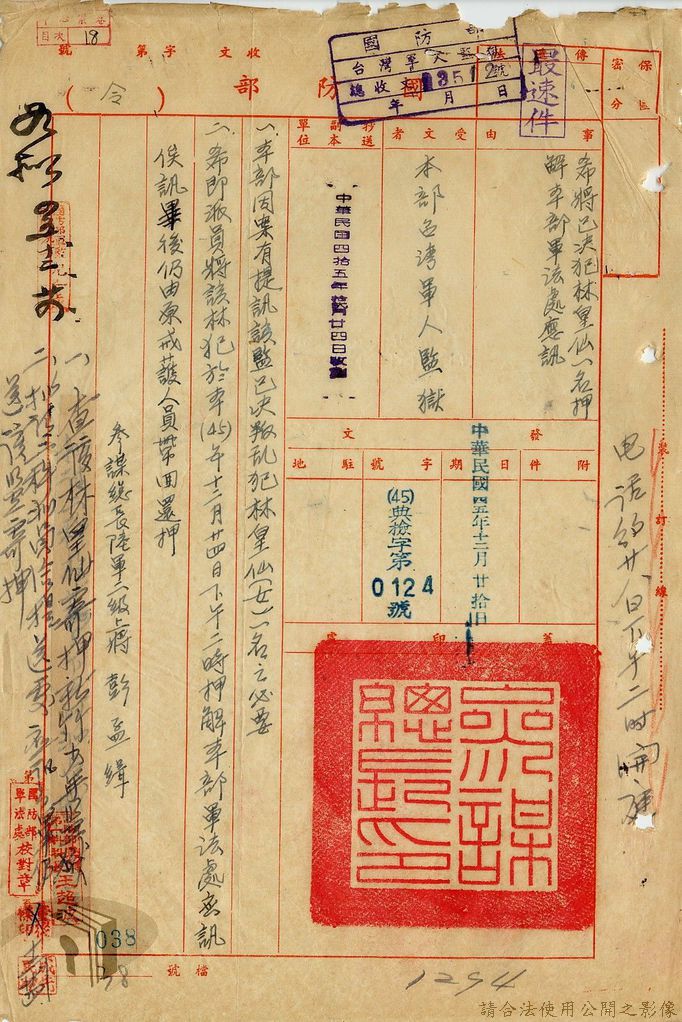 目次 18
收文 字第 號
國防部
台灣軍人監獄
總收 0351 2號
年 月 日
最速件
傳遞
保區
密分
國防部(令)
事由
希將已決犯林皇仙一名押
解本部軍法處應訊
受文者
本部台灣軍人監獄
抄送副本單位
中華民國四拾五年拾貳月廿四日收到
發文
附件
日期
中華民國四五年十二月廿拾日
字號
(45)典檢字第
0124號
駐地
蓋印處
參謀總長印
一、本部因案有提訊該監已決叛乱犯林皇仙(女)一名之必要
二、希即派員將該林犯於本(45)年十二月廿四日下午二時押解本部軍法處應訊
俟訊畢後仍由原戒護人員帶回還押
參謀總長陸軍二級上將 彭孟緝
一、查該林皇仙寄押
送該監寄押
國防部
軍法處
校對章
038
38
檔號
裝訂線
电话約廿八日下午二时開庭
1294
請合法使用公開之影像